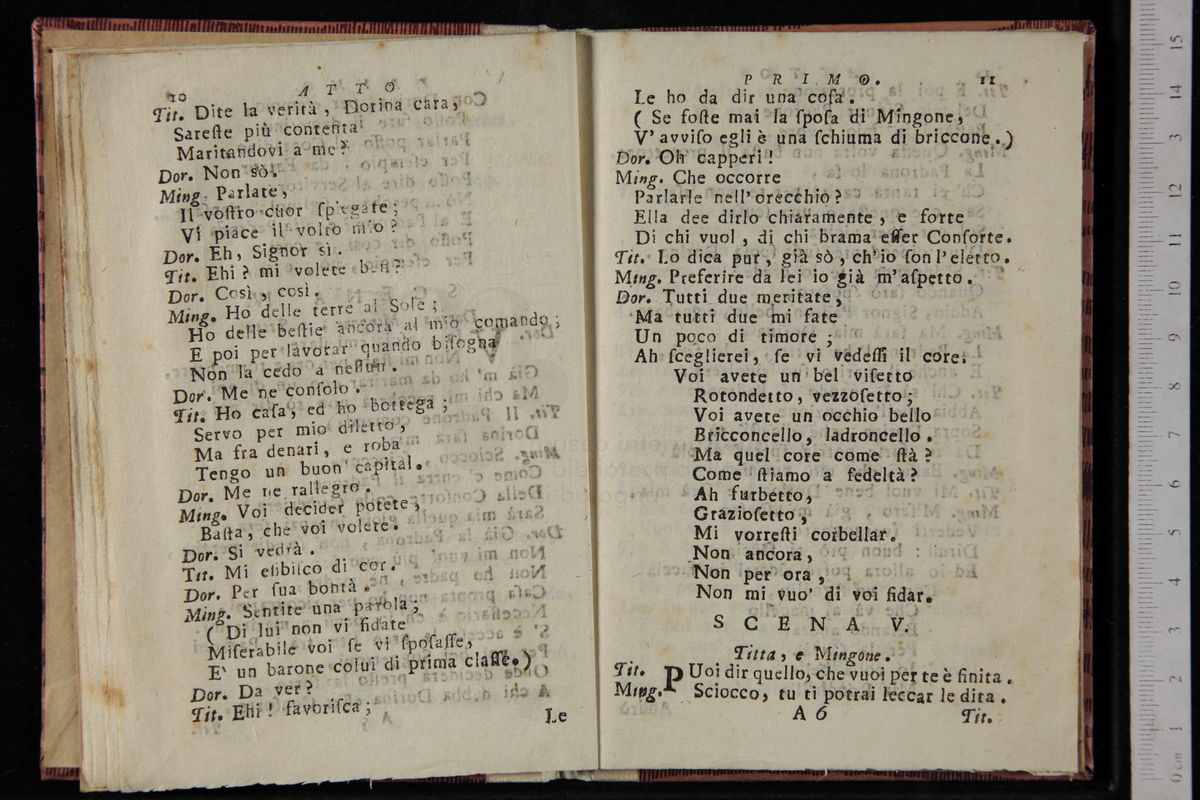 10 ATTO
Tit. Dite la verità, Dorina cara,
Sareſte più contenta
Maritandovi a me?
Dor. Non sò.
Ming. Parlate,
Il voſtro cuor ſpiegate;
Vi piace il volto mio?
Dor. Eh, Signor sì.
Tit. Ehi? mi volete ben?
Dor. Così, così.
Ming. Ho delle terre al Sole;
Ho delle beſtie ancora al mio comando;
E poi per lavorar quando biſogna
Non la cedo a neſſun.
Dor. Me ne conſolo.
Tit. Ho caſa, ed ho bottega;
Servo per mio diletto,
Ma fra denari, e roba
Tengo un buon capital.
Dor. Me ne rallegro.
Ming. Voi decider potete,
Baſta, che voi volete.
Dor. Si vedrà.
Tit. Mi eſibiſco di cor.
Dor. Per ſua bontà.
Ming. Sentite una parola;
(Di lui non vi fidate
Miſerabile voi ſe vi ſpoſaſſe,
E' un barone colui di prima claſſe.)
Dor. Da ver?
Tit. Ehi! favoriſca;
Le
PRIMO. 11
Le ho da dir una coſa.
(Se foſte mai la ſpoſa di Mingone,
V' avviſo egli è una ſchiuma di briccone.)
Dor. Oh capperi!
Ming. Che occorre
Parlarle nell' orecchio?
Ella dee dirlo chiaramente, e forte
Di chi vuol, di chi brama eſſer Conſorte.
Tit. Lo dica pur, già sò, ch' io ſon l' eletto.
Ming. Preferire da lei io già m' aſpetto.
Dor. Tutti due meritate,
Ma tutti due mi fate
Un poco di timore;
Ah ſceglierei, ſe vi vedeſſi il core.
Voi avete un bel viſetto
Rotondetto, vezzoſetto;
Voi avete un occhio bello
Bricconcello, ladroncello.
Ma quel core come ſtà?
Come ſtiamo a fedeltà?
Ah furbetto,
Grazioſetto,
Mi vorreſti corbellar.
Non ancora,
Non per ora,
Non mi vuo' di voi fidar.
SCENA V.
Titta, e Mingone.
Tit. PUoi dir quello, che vuoi per te è finita.
Ming. Sciocco, tu ti potrai leccar le dita.
A 6 Tit.